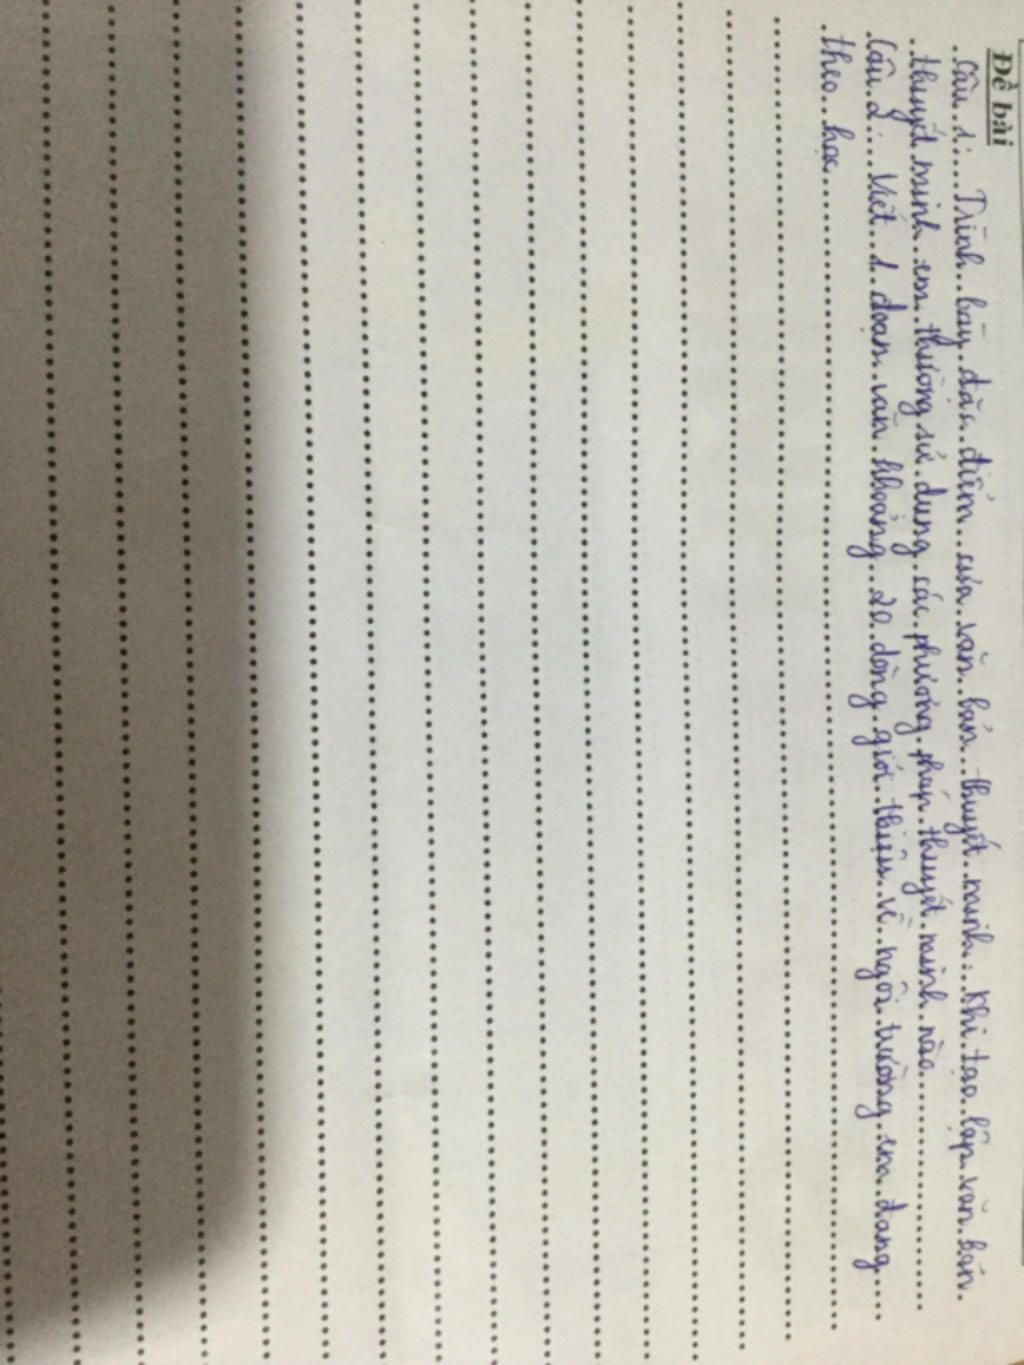 Đề bài
Câu 1: Trình bày đặc điểm của văn bản thuyết minh. Khi tạo lập văn bản
thuyết minh em thường sử dụng các phương pháp thuyết minh nào
Câu 2: Viết 1 đoạn văn khoảng 20 dòng giới thiệu về ngôi trường em đang
theo học